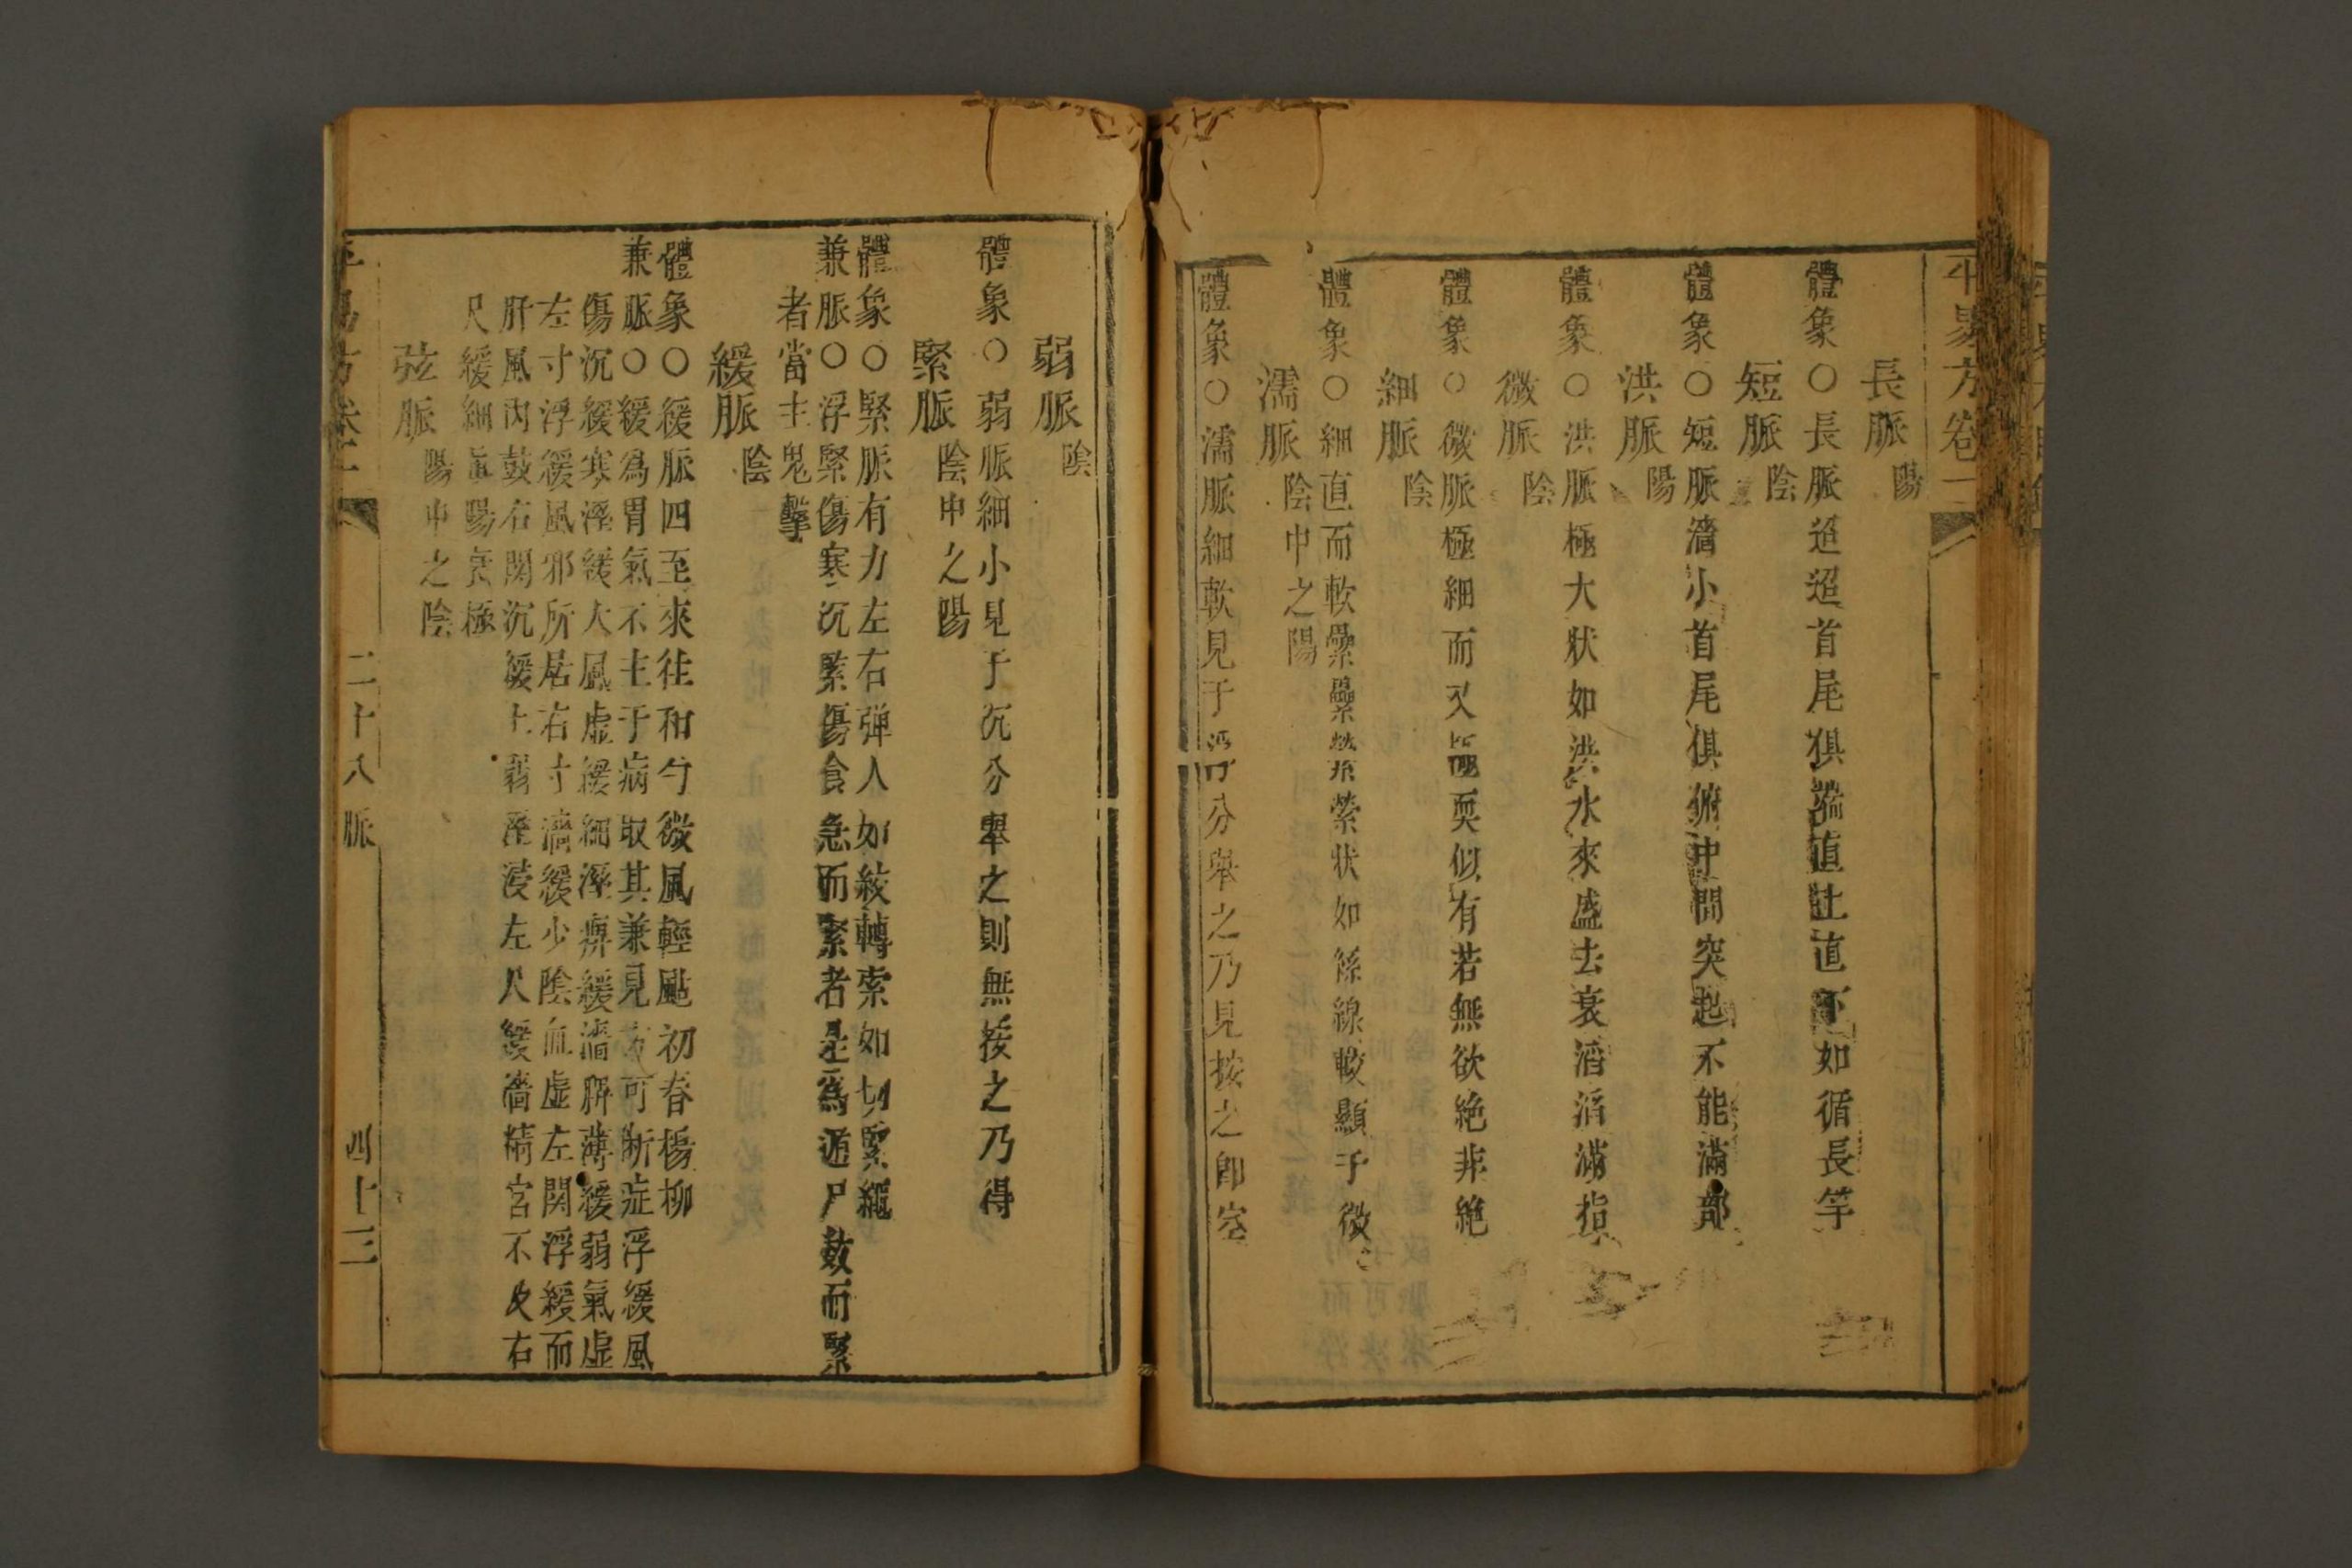 平易方卷二
長脈 陽
體象○長脈迢迢首尾俱端直上直下如循長竿
短脈 陰
體象○短脈濇小首尾俱俯中間突起不能滿部
洪脈 陽
體象○洪脈極大狀如洪水來盛去衰滔滔滿指
微脈 陰
體象○微脈極細而又極耎似有若無欲絶非絶
細脈 陰
體象○細直而軟纍纍縈縈狀如絲線較顯于微
濡脈 陰中之陽
體象○濡脈細軟見于浮分舉之乃見按之即空
弱脈 陰
體象○弱脈細小見于沉分舉之則無按之乃得
緊脈 陰中之陽
體象○緊脈有力左右弹人如絞轉索如切緊繩
兼脈○浮緊傷寒沉緊傷食急而緊者是爲遁尸數而緊
者當主鬼擊
緩脈 陰
體象○緩脈四至來往和勻微風輕颭初春楊柳
兼脈○緩爲胃氣不主于病取其兼見方可断症浮緩風
傷沉緩寒溼緩大風虚緩細溼痹緩濇脾薄緩弱氣虛
左寸浮緩風邪所居右寸濇緩少陰血虚左関浮緩而
肝風内鼓右関沉緩土弱溼浸左尺緩濇精宮不及右
尺緩細眞陽衰極
弦脈 陽中之陰
平易方卷二 二十八脈 四十三